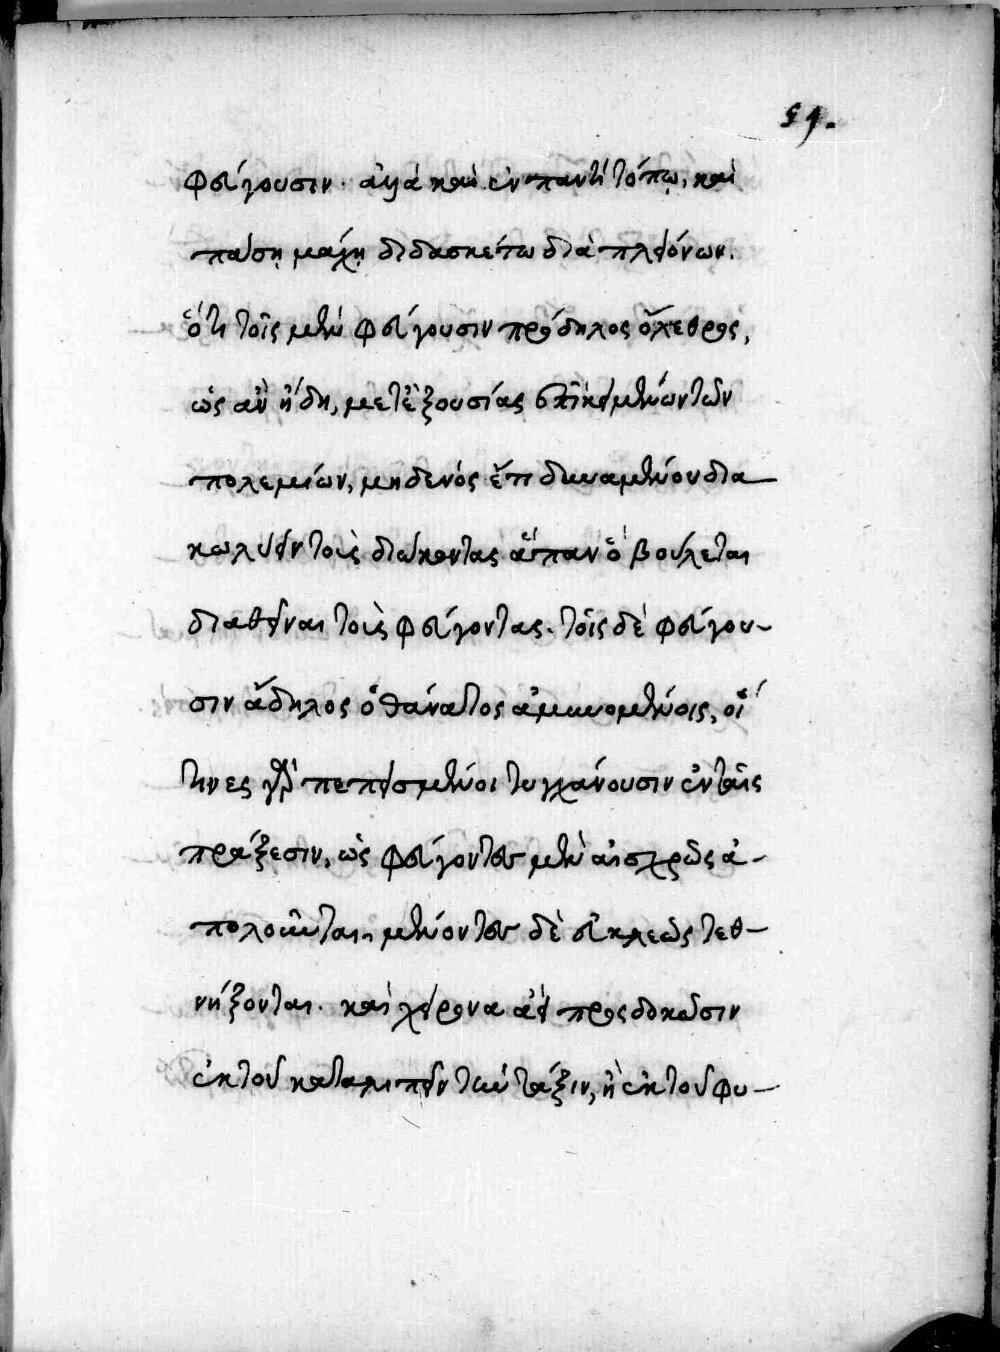 59.
φεύγουσιν. ἀλλὰ καὶ ἐν παντὶ τόπῳ, καὶ
πάσῃ μάχῃ διδασκέτω διὰ πλειόνων.
ὅτι τοῖς μὲν φεύγουσιν πρόδηλος ὄλεθρος,
ὡς ἂν ἤδη, μετ' ἐξουσίας ἐπικειμένων τῶν
πολεμίων, μηδενὸς ἔτι δυναμένου δια
κωλύειν τοὺς διώκοντας ἅπαν ὃ βούλεται
διαθεῖναι τοὺς φεύγοντας. τοῖς δὲ φεύγου-
σιν ἄδηλος ὁ θάνατος ἀμυνομένοις, οἵ
τινες γὰρ πεπεισμένοι τυγχάνουσιν ἐν ταῖς
πράξεσιν, ὡς φεύγοντες μὲν αἰσχρῶς ἀ-
πολοῦνται, μένοντες δὲ εὐκλεῶς τεθ-
νήξονται. καὶ χείρονα ἀεὶ προσδοκῶσιν
ἐκ τοῦ καταλιπεῖν τὴν τάξιν, ἢ ἐκ τοῦ φυ-